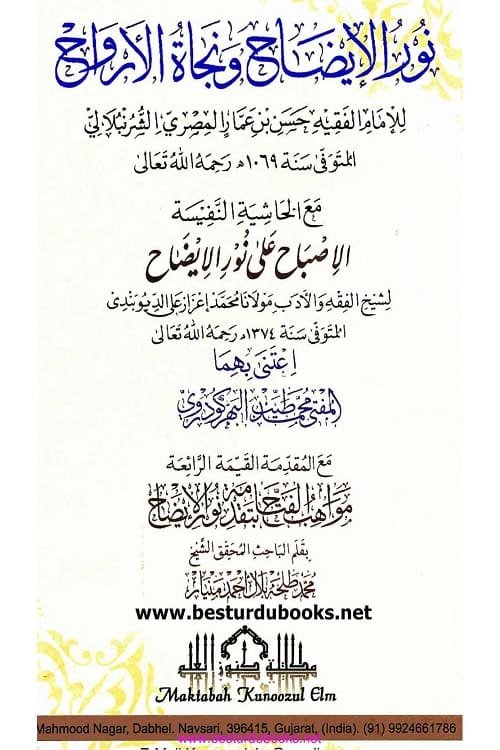 نُورُ الإِيضَاحِ وَنَجَاةُ الأَرْوَاحِ
لِلإِمَامِ الفَقِيهِ حَسَنِ بْنِ عَمَّارٍ المِصْرِيِّ الشُّرُنْبُلَالِيِّ
المُتَوَفَّى سَنَة ١٠٦٩ھ رَحِمَهُ اللهُ تَعَالَى
مَعَ الحَاشِيَةِ النَّفِيسَةِ
الإِصْبَاح عَلَى نُوْرِ الإِيْضَاح
لِشَيْخِ الفِقْهِ وَالأَدَبِ مَوْلَانَا مُحَمَّد إِعْزَاز عَلِي الدِّيُوبَنْدِي
المُتَوَفَّى سَنَة ١٣٧٤ھ رَحِمَهُ اللهُ تَعَالَى
اِعْتَنَى بِهِمَا
المفتي محمد طيب البهرکودروي
مَعَ المُقَدِّمَةِ القَيِّمَةِ الرَّائِعَةِ
مواهب الفتاح بتقدمة نور الإيضاح
بِقَلَمِ البَاحِثِ المُحَقِّقِ الشَّيْخِ
محمد طلحة بلال أحمد منيار
www.besturdubooks.net
مكتبة كنوز العلم
Maktabah Kunoozul Elm
Mahmood Nagar, Dabhel. Navsari, 396415, Gujarat, (India). (91) 9924661786
www.besturdubooks.net